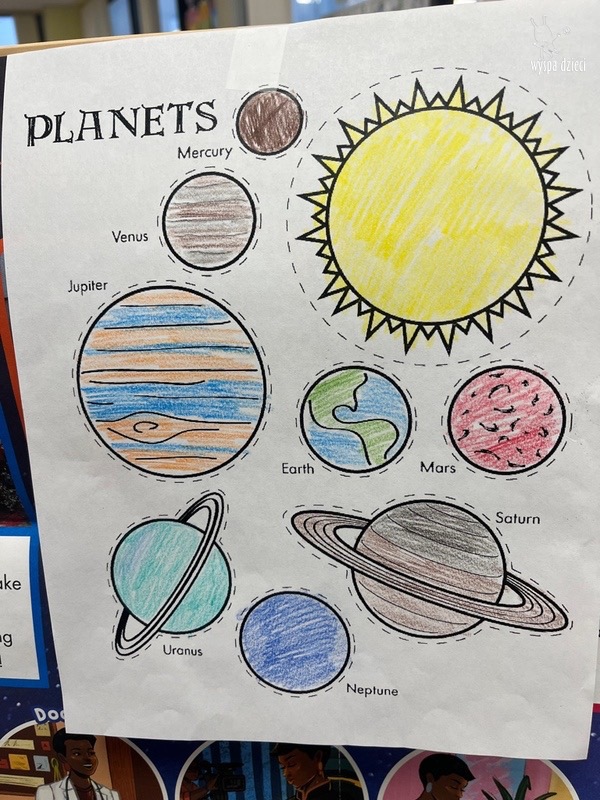 wyspa dzieci
PLANETS
Mercury
Venus
Jupiter
Earth
Mars
Saturn
Uranus
Neptune